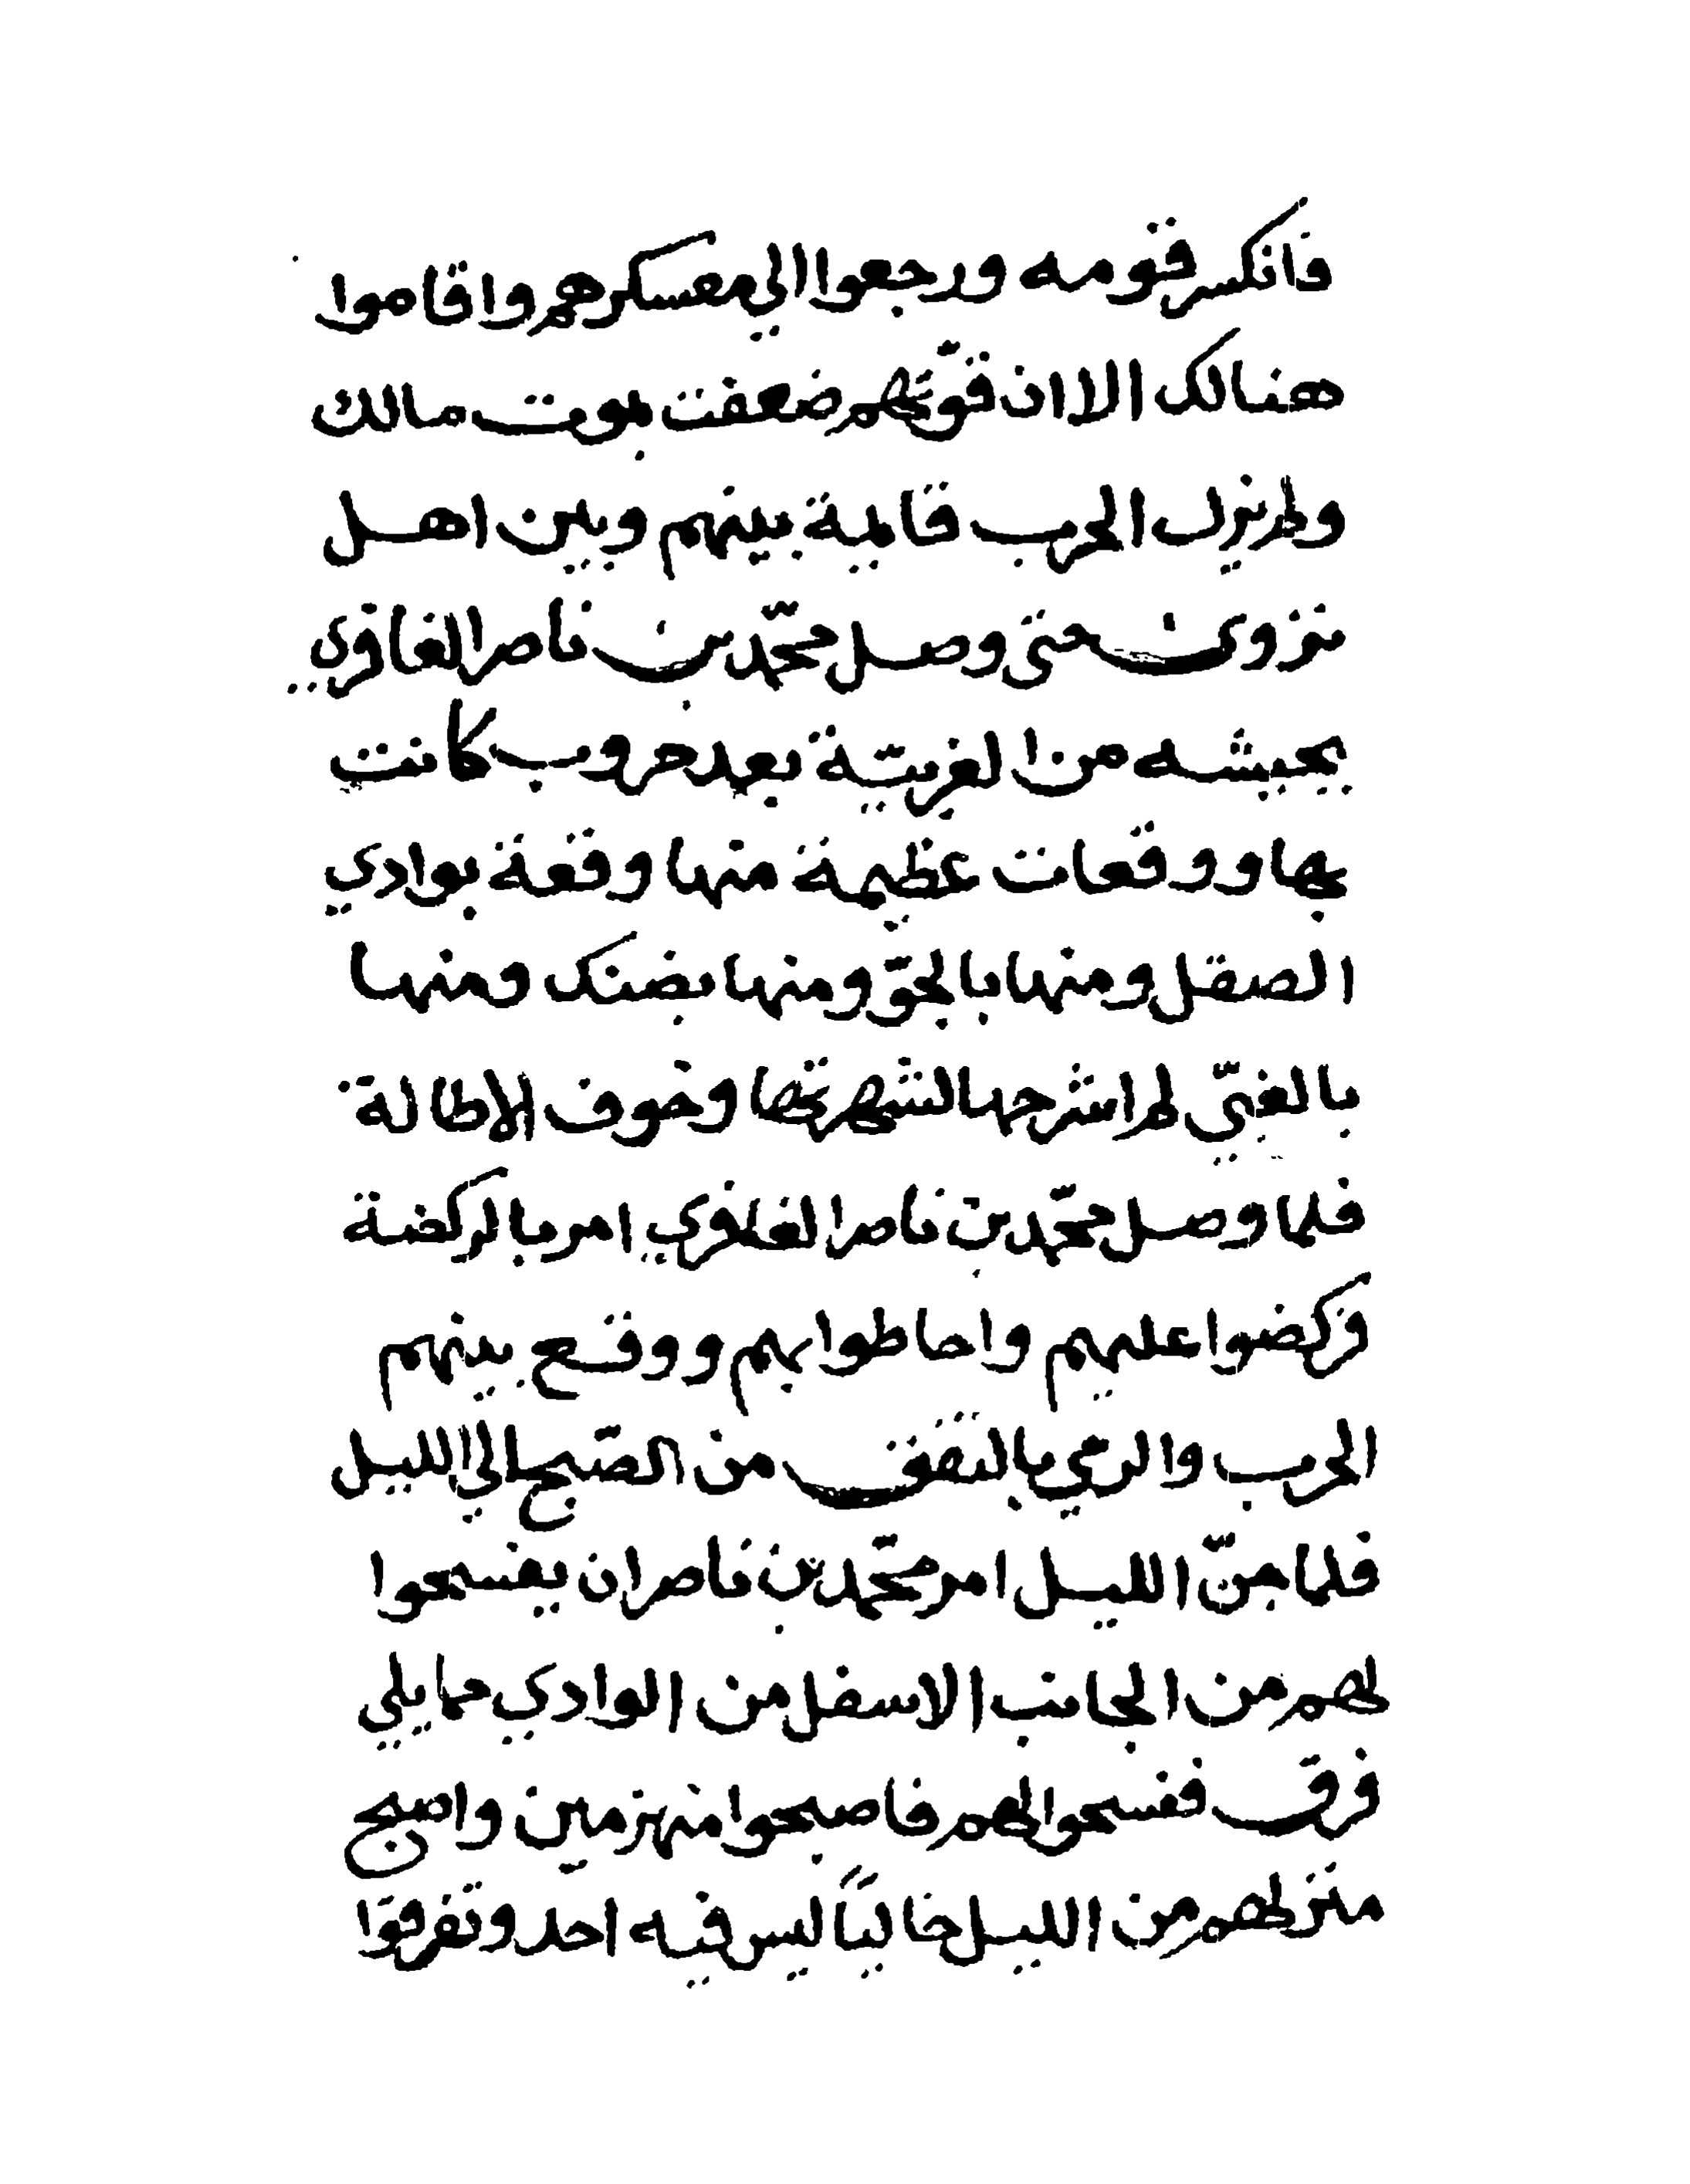 فانكسر قومه ورجعوا الي معسكرهم واقاموا
هنالك الا ان قوّتهم ضعفت بموت مالك
ولم يزل الحرب قايمة بينهم وبين اهل
نزوى حتى وصل محمّد بن ناصر الغافري
بجيشه من الغربيّة بعد حروب كانت
بها ووقعات عظيمة منها وقعة بوادي
الصقل ومنها بالجوّ ومنها بضنك ومنها
بالغبيّ لم اشرحها لشهرتها وخوف الاطالة
فلما وصل محمّد بن ناصر الغافري امر بالركضة
فركضوا عليهم واحاطوا بهم ووقع بينهم
الحرب والرمي بالتفق من الصّبح الي الليل
فلما جنّ الليل امر محمّد بن ناصر ان يفسحوا
لهم من الجانب الاسفل من الوادي مما يلي
فرق ففسحوا لهم فاصبحوا منهزمين واصبح
منزلهم من الليل خاليًا ليس فيه احد وتفرقوا